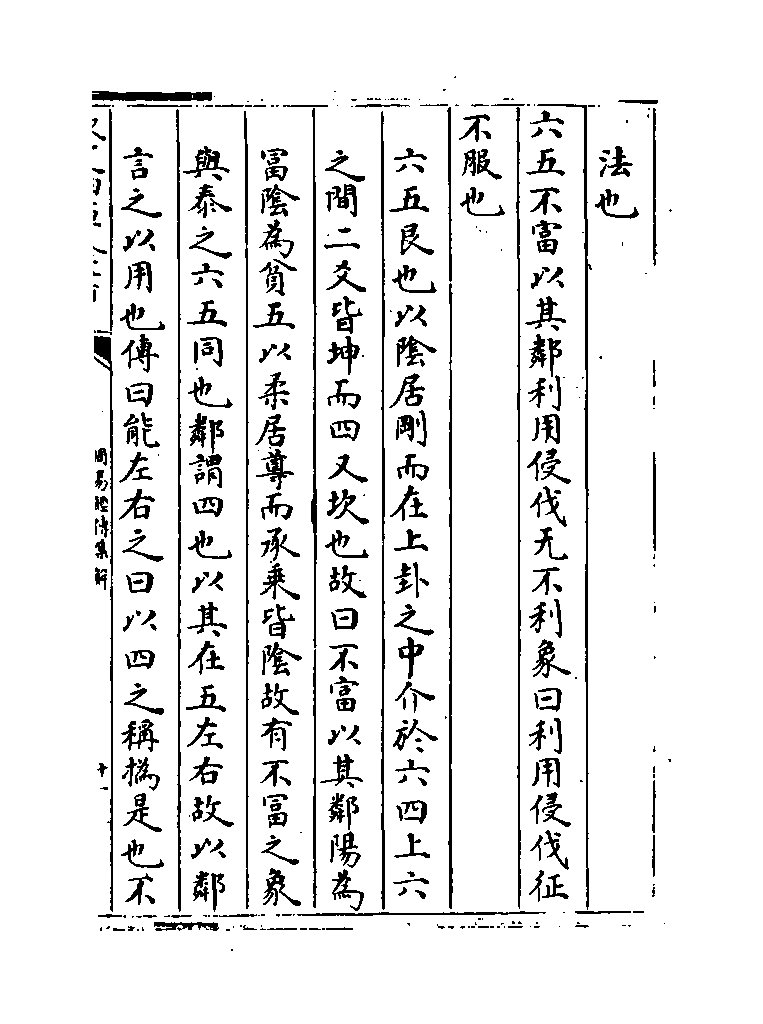 法也
六五不富以其鄰利用侵伐无不利象曰利用侵伐征
不服也
六五艮也以陰居剛而在上卦之中介於六四上六
之間二爻皆坤而四又坎也故曰不富以其鄰陽為
富陰為貧五以柔居尊而承乗皆陰故有不富之象
與泰之六五同也鄰謂四也以其在五左右故以鄰
言之以用也傳曰能左右之曰以四之稱撝是也不
周易經傳集解
十一